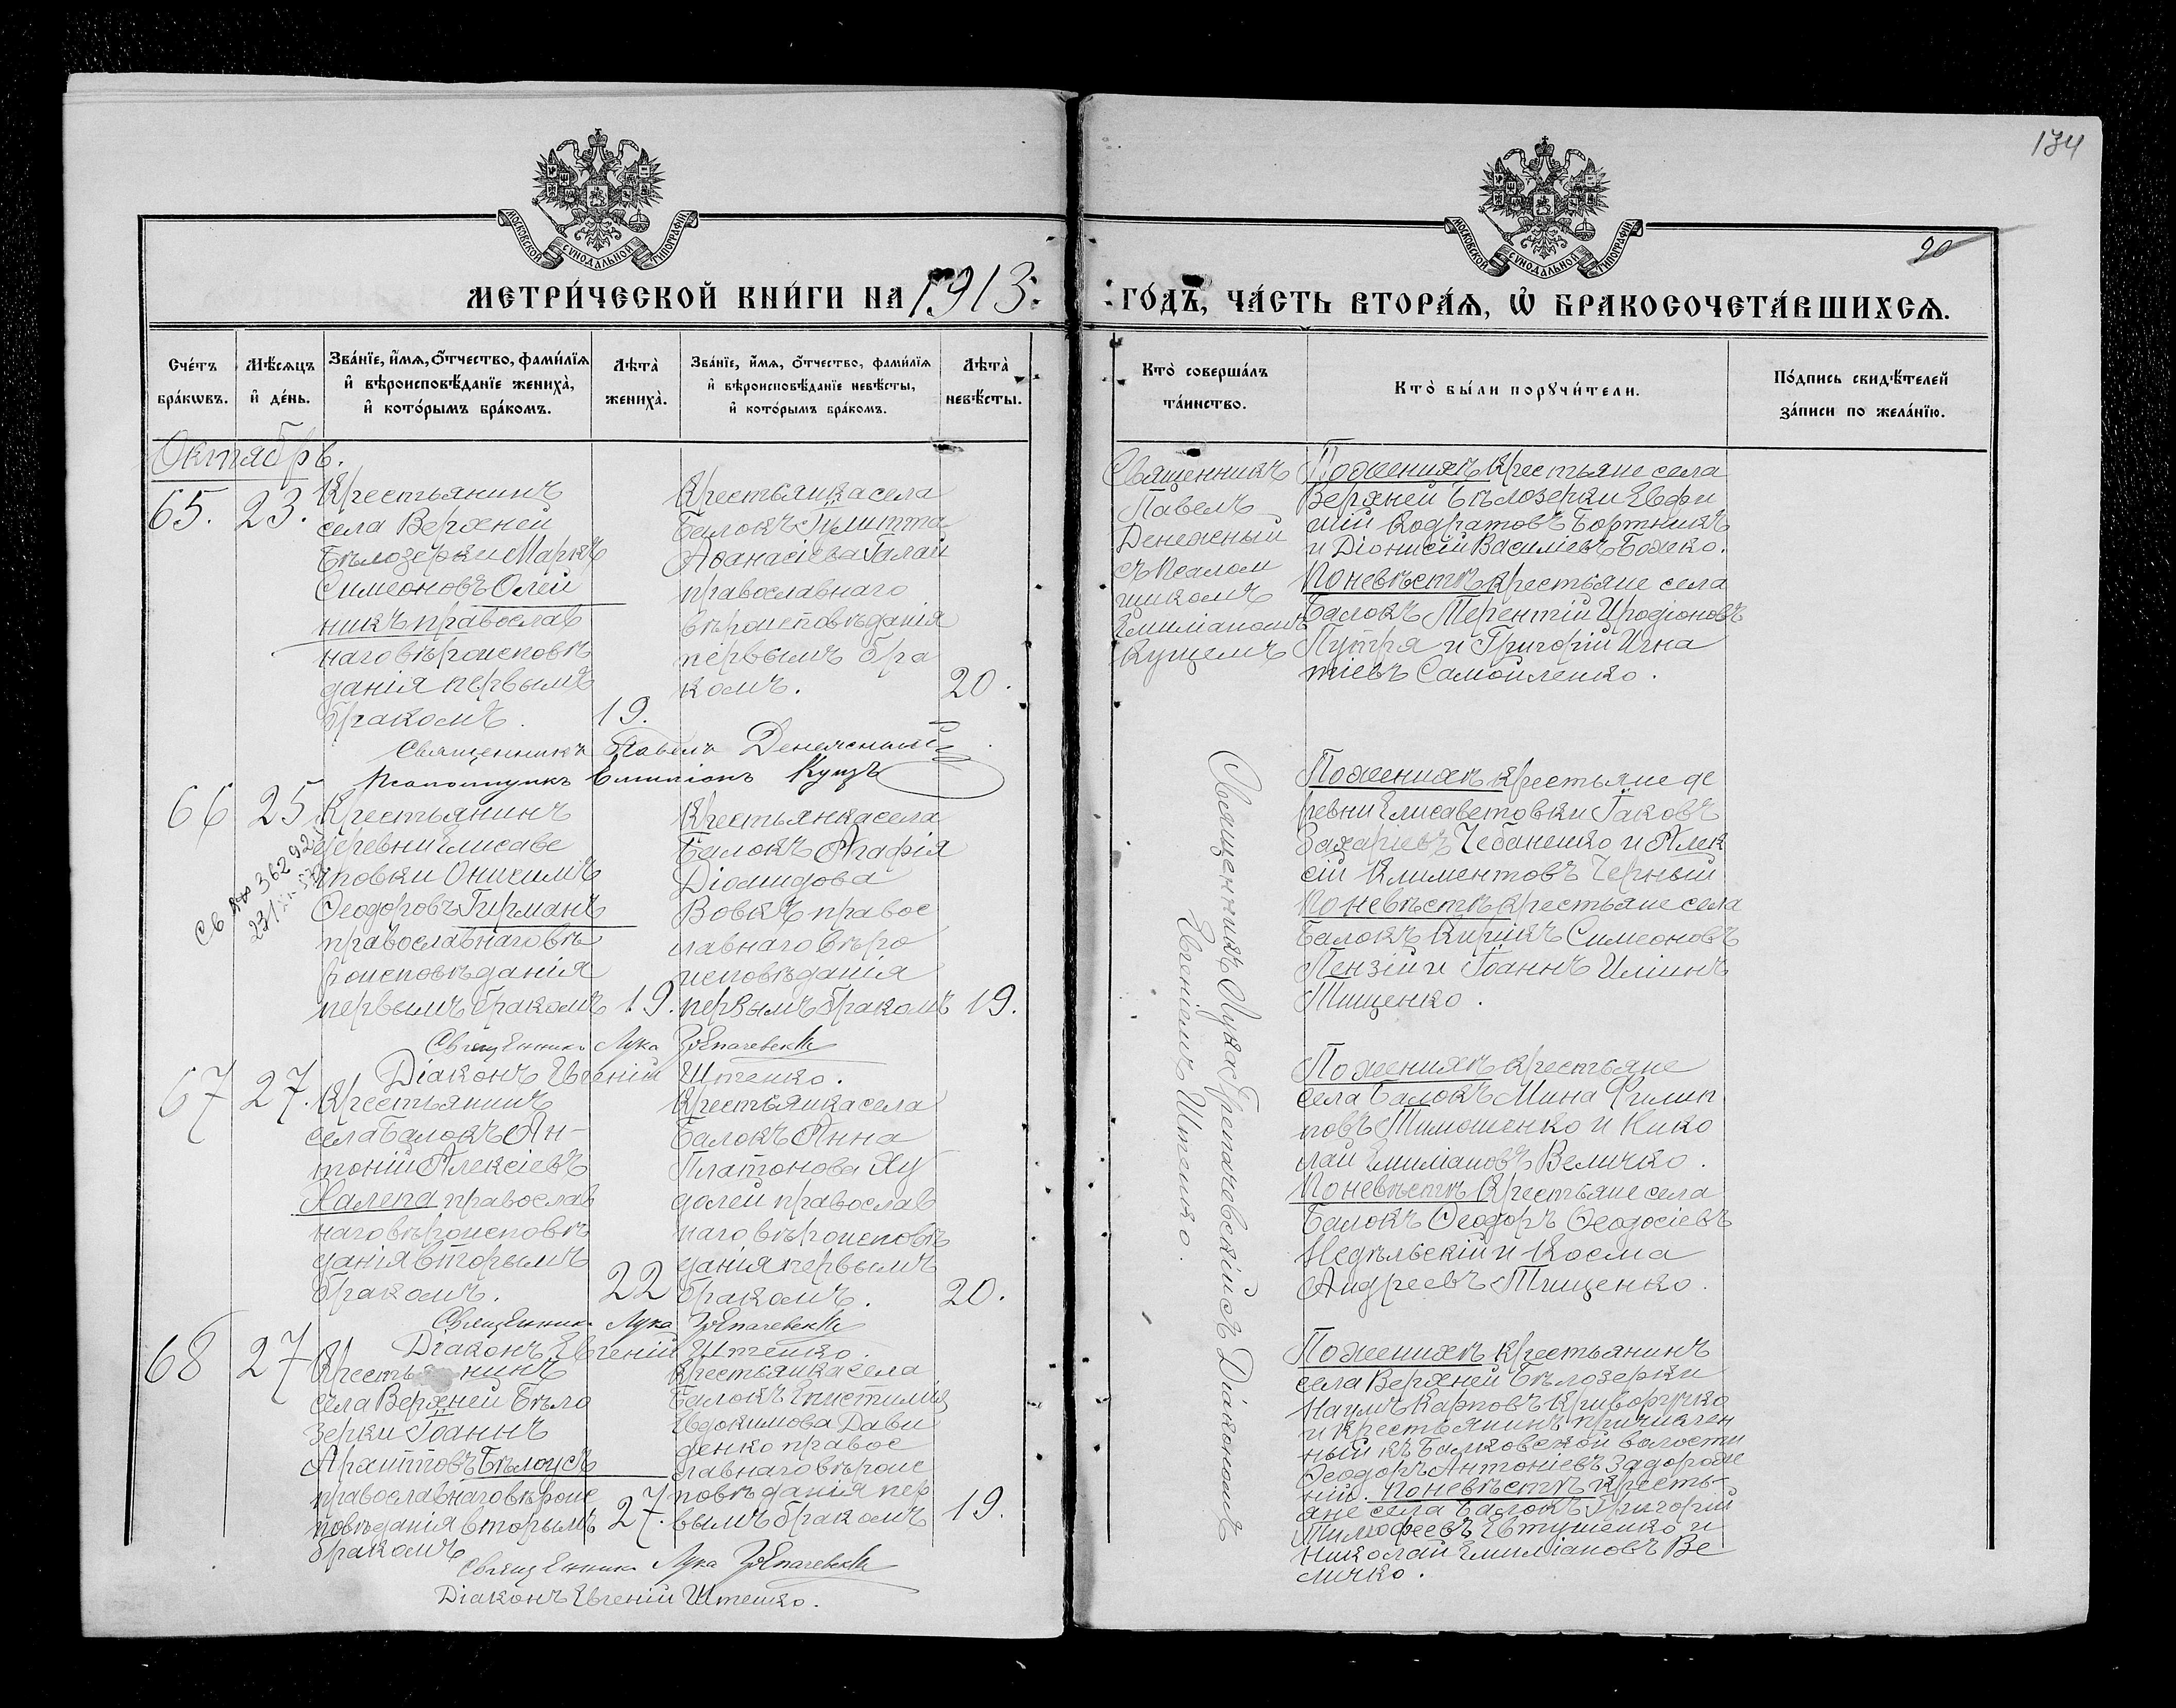 134
20
МОСКОВСКОЙ СѴНОДАЛЬНОЙ ТИПОГРАФІИ
МОСКОВСКОЙ СѴНОДАЛЬНОЙ ТИПОГРАФІИ
МЕТРИ́ЧЕСКОЙ КНИ́ГИ НА 1913.
ГО́ДЪ, ЧА́СТЬ ВТОРА́Ѧ, Ѽ БРАКОСОЧЕТА́ВШИХСѦ.
Сче́тъ бра́кѡвъ.
Мѣ́сѧцъ и҆ де́нь.
Зва́нїе, и҆́мѧ, ѻ҆́тчество, фами́лїѧ
и҆ вѣроисповѣ́данїе жениха̀,
и҆ кото́рымъ бра́комъ.
Лѣта̀ жениха̀.
Зва́нїе, и҆́мѧ, ѻ҆́тчество, фами́лїѧ
и҆ вѣроисповѣ́данїе невѣ́сты,
и҆ кото́рымъ бра́комъ.
Лѣта̀ невѣ́сты.
Кто̀ соверша́лъ
та́инство.
Кто̀ бы́ли порꙋчи́тели.
По́дпись свидѣ́телей
за́писи по жела́нїю.
Октябрь.
65.
23.
Крестьянинъ
села Верхней
Бѣлозерки Маркъ
Симеоновъ Олей
никъ православ
наго вѣроисповѣ
данія первымъ
бракомъ.
19.
Крестьянка села
Балокъ Іулитта
Аѳанасіева Галай
православнаго
вѣроисповѣданія
первымъ бра
комъ.
20.
Священникъ Павелъ Денежный
Псаломщикъ Емиліанъ Кущъ
Священникъ
Павелъ
Денежный
съ псалом
щикомъ
Емиліаномъ
Кущемъ
По женихѣ крестьяне села
Верхней Бѣлозерки Евфи
мій Кодратовъ Бортникъ
и Діонисій Василіевъ Божко.
По невѣстѣ крестьяне села
Балокъ Терентій Иродіоновъ
Путря и Григорій Игна
тіевъ Самойленко.
66
25
Крестьянинъ
деревни Елисаве
товки Онисимъ
Ѳеодоровъ Гирманъ
православнаго вѣ
роисповѣданія
первымъ бракомъ
19.
Крестьянка села
Балокъ Агафія
Діомидова
Вовкъ правос
лавнаго вѣро
исповѣданія
первымъ бракомъ
19.
Священникъ Лука
Діаконъ Евгеній Штепко.
По женихѣ крестьяне де
ревни Елисаветовки Іаковъ
Захаріевъ Чебаненко и Алек
сій Климентовъ Черный
По невѣстѣ крестьяне села
Балокъ Кирікъ Симеоновъ
Пензій и Іоаннъ Иліинъ
Тищенко.
67
27.
Крестьянинъ
села Балокъ Ан-
тоній Алексіевъ
Халепа православ
наго вѣроисповѣ
данія вторымъ
бракомъ.
22
Крестьянка села
Балокъ Анна
Платонова Ху
долей православ
наго вѣроисповѣ
данія первымъ
бракомъ.
20.
Священникъ Лука
Діаконъ Евгеній Штепко.
По женихѣ крестьяне
села Балокъ Мина Филип
повъ Тимошенко и Нико
лай Емиліановъ Величко.
По невѣстѣ крестьяне села
Балокъ Ѳеодоръ Ѳеодосіевъ
Недѣльскій и Косма
Андреевъ Тищенко.
68
27
Крестьянинъ
села Верхней Бѣло
зерки Іоаннъ
Бѣлоусъ
православнаго вѣроис
повѣданія вторымъ
бракомъ
27.
Крестьянка села
Балокъ Епистимія
Евдокимова Дави
денко правос
лавнаго вѣроис
повѣданія пер
вымъ бракомъ
19.
Священникъ Лука
Діаконъ Евгеній Штепко.
По женихѣ крестьянинъ
села Верхней Бѣлозерки
Наумъ Карповъ Криворучко
и крестьянинъ причислен
ный къ Балковской волости
Ѳеодоръ Антоніевъ Задорож
ній. По невѣстѣ кресть-
яне села Балокъ Григорій
Тимоѳеевъ Евтушенко и
Николай Емиліановъ Ве
личко.
Священникъ Лука съ Діакономъ
Евгеніемъ Штепко.